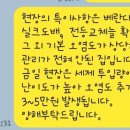 현장의 특이사항은 베란다
실크도배, 전등교체등 확
그 외 기본 오염도가 상당
관리가 전혀 안된 집입니다
금일 현장은 세제 투입량이
난이도가 높아 오염도 추가
3~5만원 발생됩니다.
양해부탁드립니다.
:31